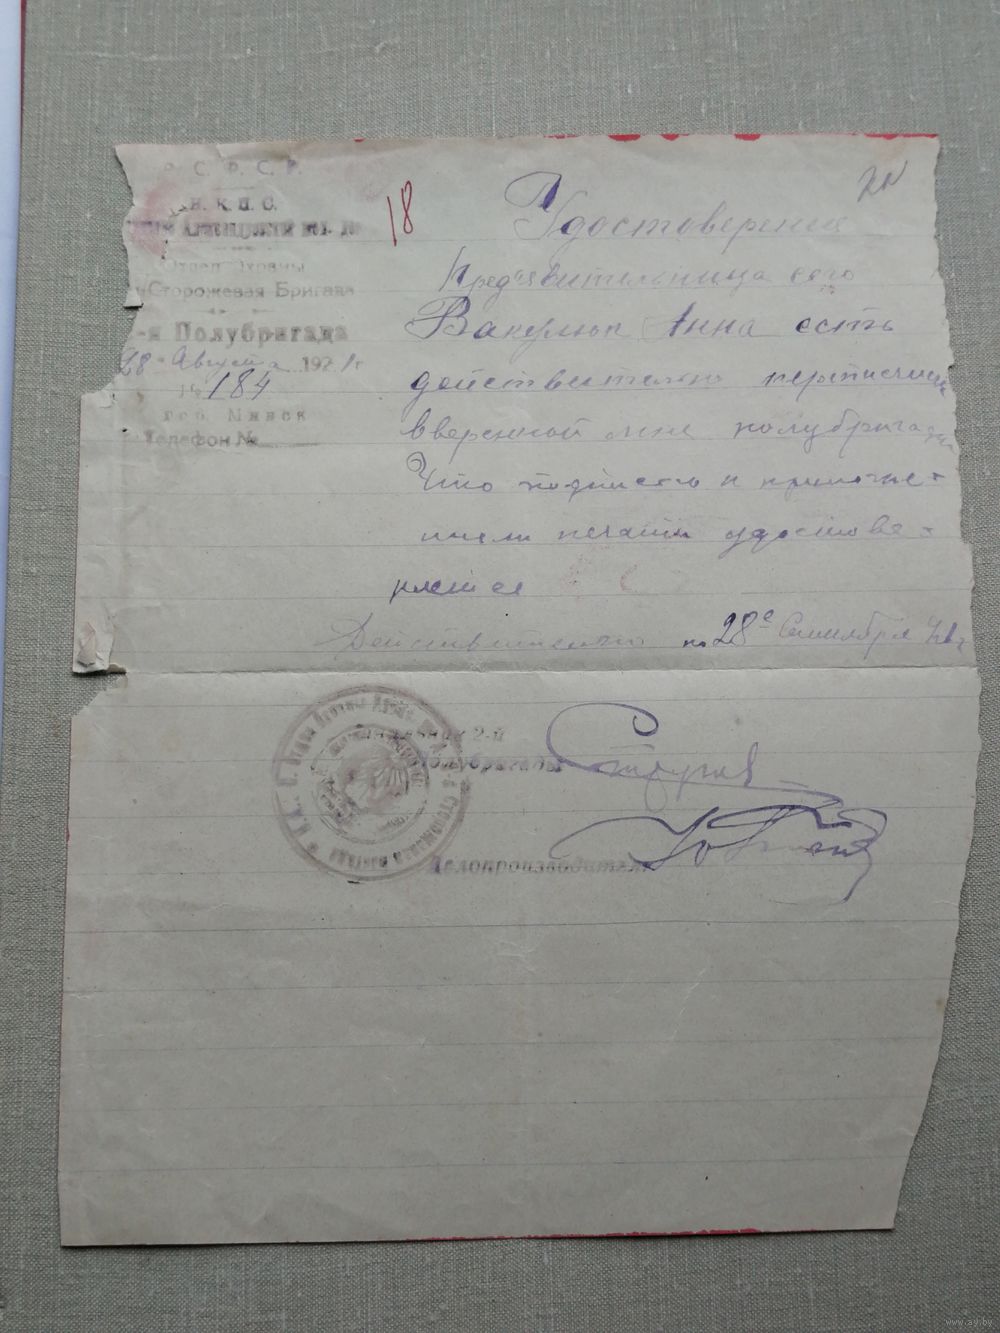 Р. С. Ф. С. Р.
Н. К. П. С.
Отдел Охраны
Сторожевая Бригада
-я Полубригада
18 Августа 1921 г
№ 184
гор. Минск
Телефон №
18
Удостоверение
Предъявительница сего
Вакулюк Анна есть
действительно
вверенной мне полубригады
Что подписью и приложе-
нием печати удостове-
ряется
Действительно по 28е Сентября 21 г
2-й
Полубригады
Делопроизводитель
www.ay.by